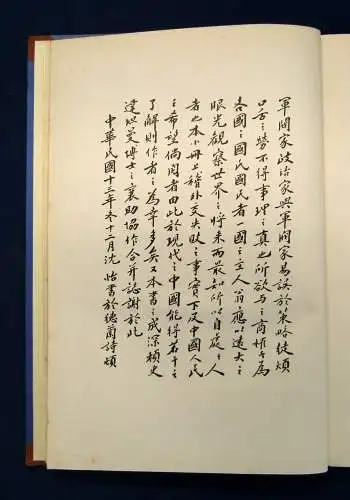 軍閥家政治家與軍閥家易誤於策略徒煩
口舌之勞不得事理之真也所欲与之商榷乍為
各國之國民國民者一國之主人翁應以遠大之
眼光觀察世界之將来而最知所以自處之人
者也本小冊上稽外交失敗之事實下及中國人民
之希望倘閱者由此於現代之中國能得若干之
了解則作者之為幸多矣又本書之成深賴史
達此曼博士之襄助協作合并誌謝於此
中華民國十三年冬十一月沈怡書於德蘭詩頓